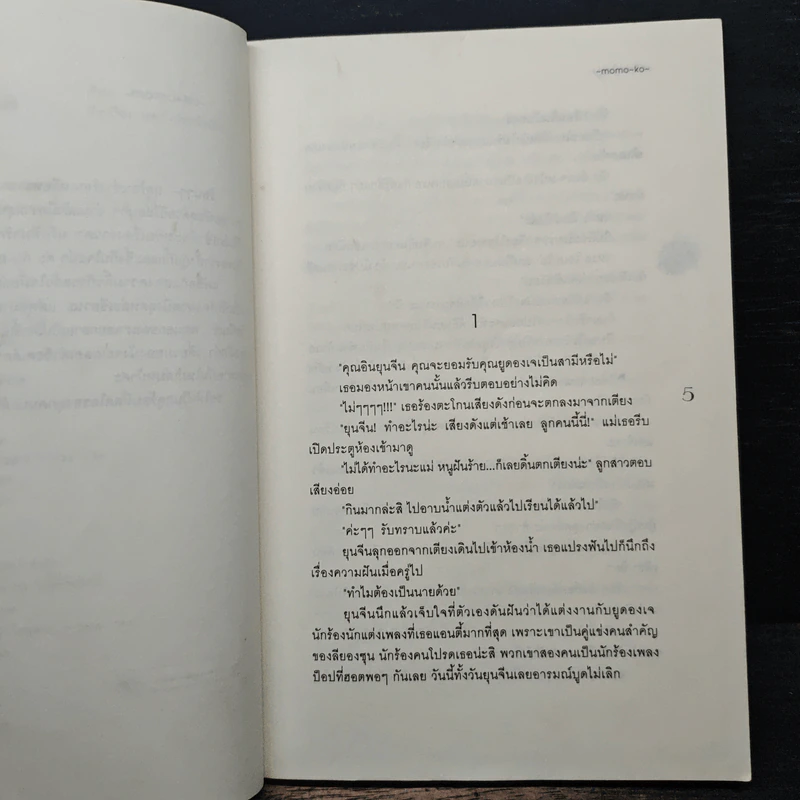 -momo-ko-
1
"คุณอินยุนจีน คุณจะยอมรับคุณยูดองเจเป็นสามีหรือไม่"
เธอมองหน้าเขาคนนั้นแล้วรีบตอบอย่างไม่คิด
"ไม่ๆๆๆๆ!!!" เธอร้องตะโกนเสียงดังก่อนจะตกลงมาจากเตียง
5
"ยุนจีน! ทำอะไรน่ะ เสียงดังแต่เช้าเลย ลูกคนนี้นี่!" แม่เธอรีบ
เปิดประตูห้องเข้ามาดู
"ไม่ได้ทำอะไรนะแม่ หนูฝันร้าย...ก็เลยดิ้นตกเตียงน่ะ" ลูกสาวตอบ
เสียงอ่อย
"กินมากล่ะสิ ไปอาบน้ำแต่งตัวแล้วไปเรียนได้แล้วไป"
"ค่ะๆๆ รับทราบแล้วค่ะ"
ยุนจีนลุกออกจากเตียงเดินไปเข้าห้องน้ำ เธอแปรงฟันไปก็นึกถึง
เรื่องความฝันเมื่อครู่ไป
"ทำไมต้องเป็นนายด้วย"
ยุนจีนนึกแล้วเจ็บใจที่ตัวเองดันฝันว่าได้แต่งงานกับยูดองเจ
นักร้องนักแต่งเพลงที่เธอแอนตี้มากที่สุด เพราะเขาเป็นคู่แข่งคนสำคัญ
ของลียองซุน นักร้องคนโปรดเธอน่ะสิ พวกเขาสองคนเป็นนักร้องเพลง
ป็อปที่ฮอตพอๆ กันเลย วันนี้ทั้งวันยุนจีนเลยอารมณ์บูดไม่เลิก